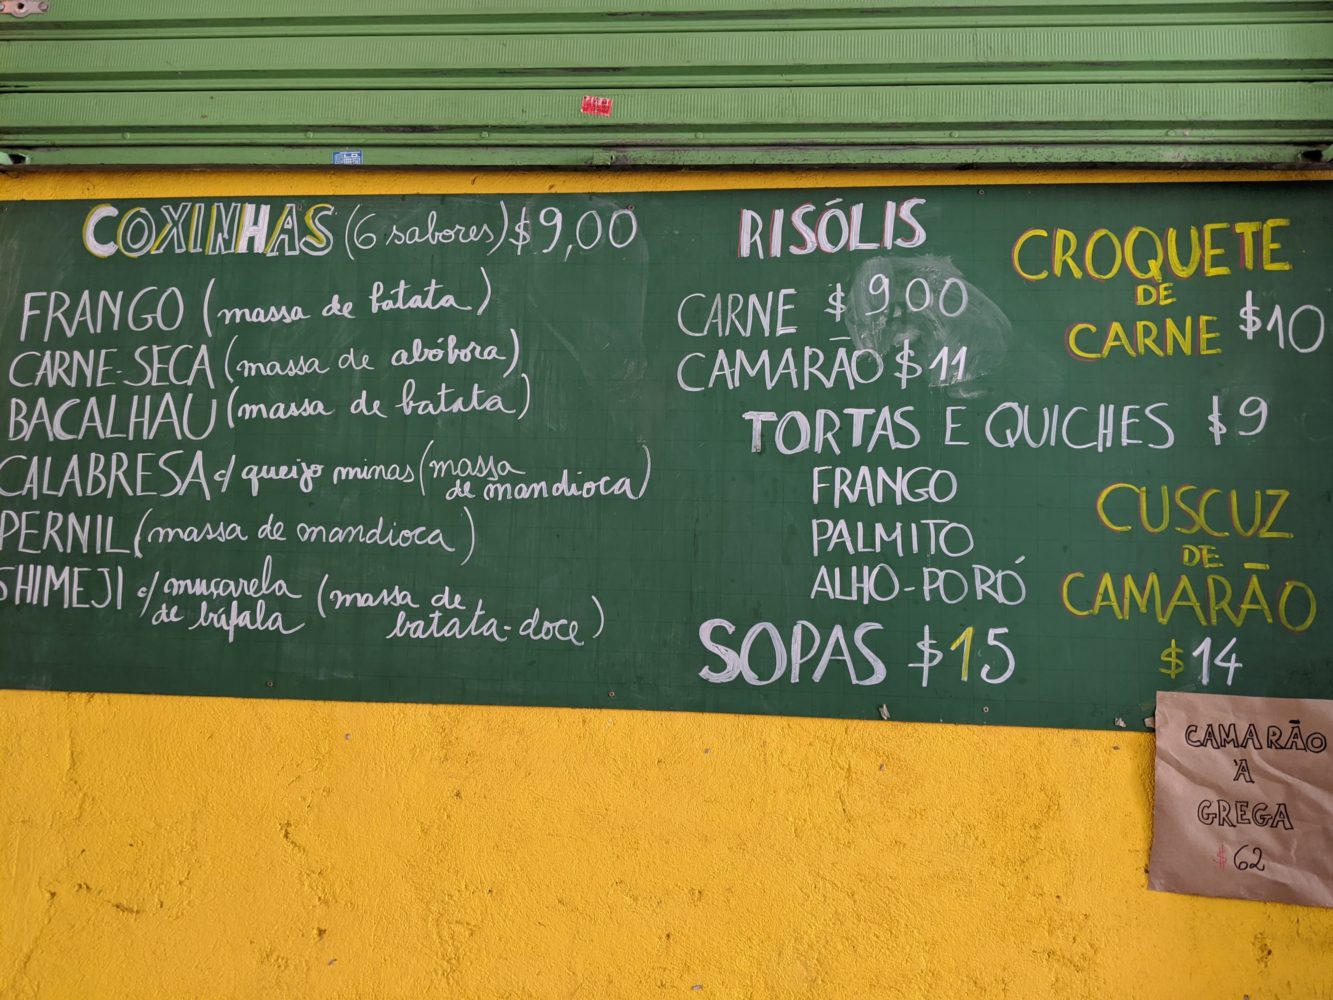 COXINHAS (6 sabores) $9,00
FRANGO (massa de batata)
CARNE-SECA (massa de abóbora)
BACALHAU (massa de batata)
CALABRESA c/ queijo minas (massa
de mandioca)
PERNIL (massa de mandioca)
SHIMEJI c/ muçarela
de búfala (massa de
batata-doce)
RISÓLIS
CARNE $9,00
CAMARÃO $11
CROQUETE
DE
CARNE $10
TORTAS E QUICHES $9
FRANGO
PALMITO
ALHO-PORÓ
SOPAS $15
CUSCUZ
DE
CAMARÃO
$14
CAMARÃO
À
GREGA
$62